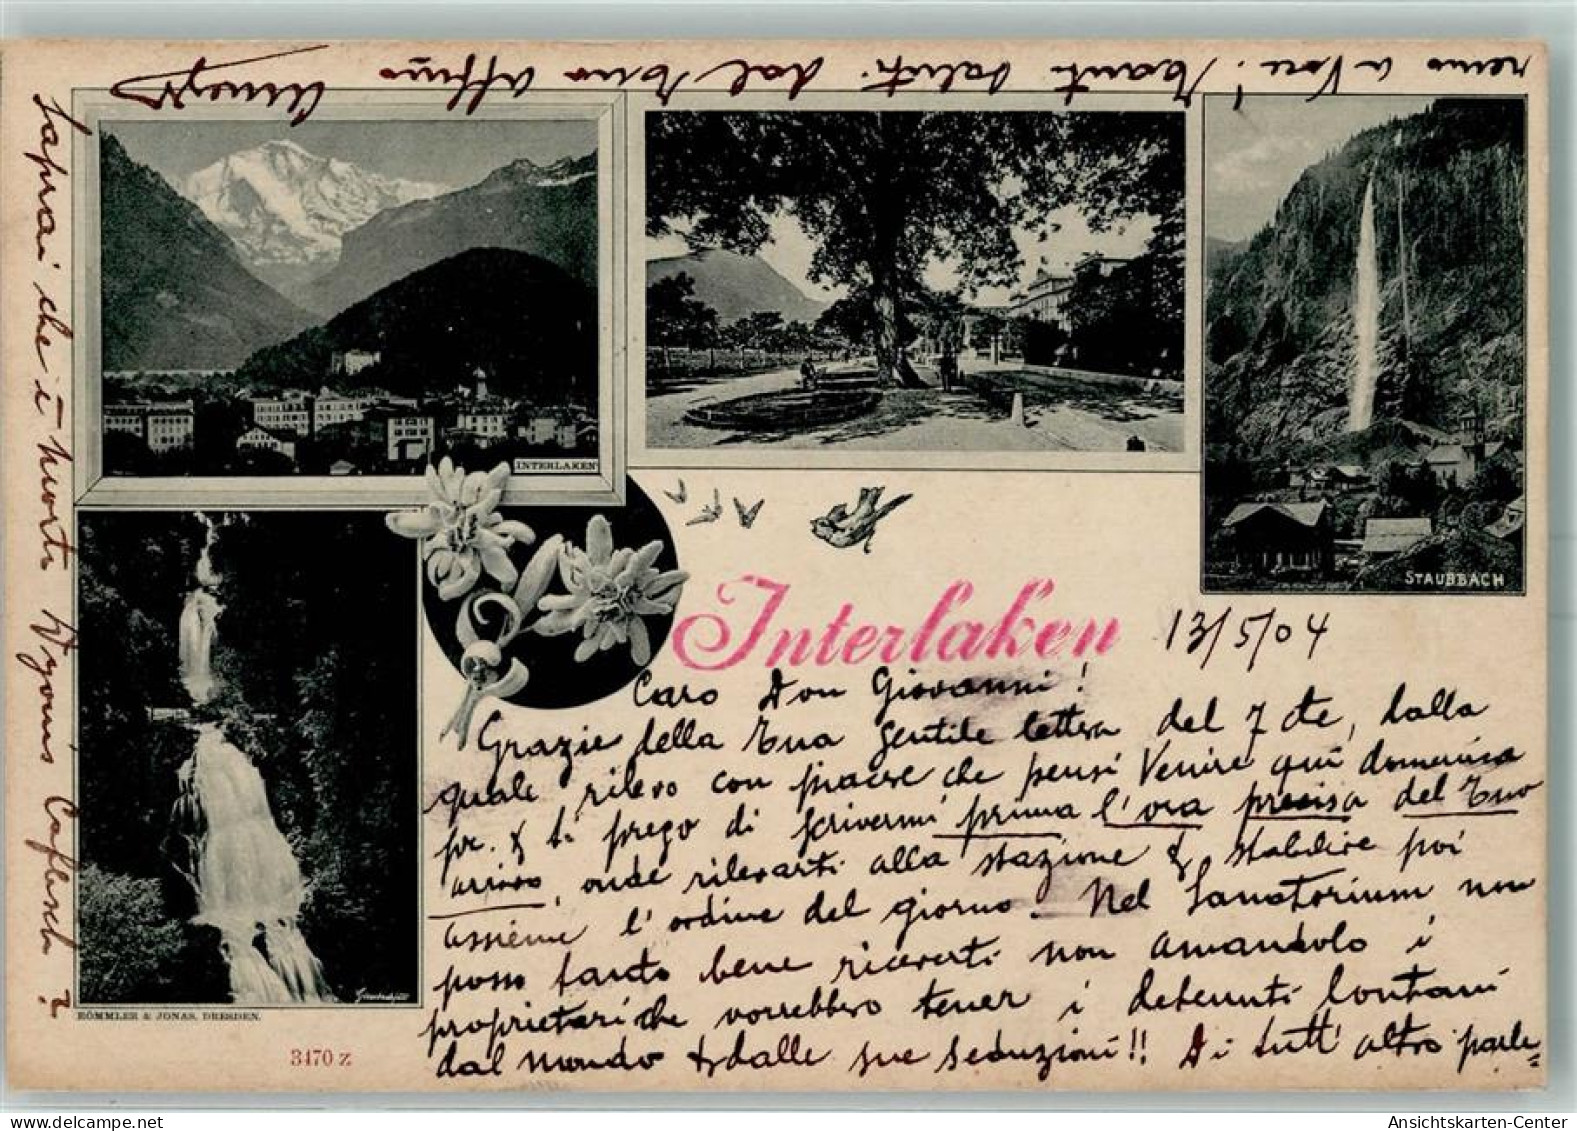 INTERLAKEN
STAUBBACH
Interlaken 13/5/04
Caro Don Giovanni!
Grazie della tua gentile lettera del 7 cte, dalla
quale rilevo con piacere che pensi venire qui domenica
pr. & ti prego di scrivermi prima l'ora precisa del tuo
arrivo, onde rilevarti alla stazione & stabilire poi
assieme l'ordine del giorno. Nel Sanatorium non
posso tanto bene riceverti non amandolo i
proprietari che vorrebbero tener i detenuti lontani
dal mondo & dalle sue seduzioni!! Di tutt'altro parle=
remo a voce! Tanti saluti dal tuo affmo
Saprai che è morto Caflisch?
RÖMMLER & JONAS, DRESDEN.
3170 z
Ansichtskarten-Center